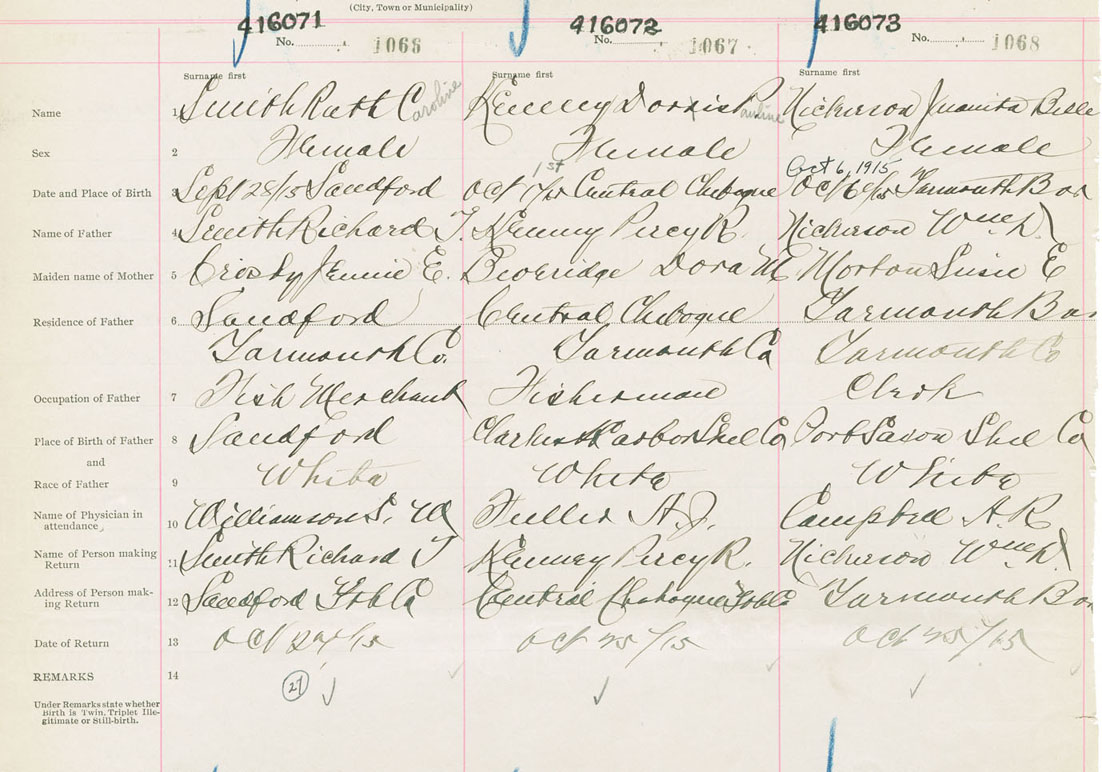 (City, Town or Municipality)
416071 416072 416073
No. 1066 No. 1067 No. 1068
Surname first Surname first Surname first
Name 1 Smith Ruth Caroline Kenney Dorris Pauline Nickerson Juanita Belle
Sex 2 Female Female Female
1st Oct 6, 1915
Date and Place of Birth 3 Sept 28/15 Sandford Oct 1/15 Central Chebogue Oct 6/15 Yarmouth Bar
Name of Father 4 Smith Richard T. Kenney Percy R. Nickerson Wm H.
Maiden name of Mother 5 Crosby Jennie E. Beveridge Dora M Morton Susie E
Residence of Father 6 Sandford Central Chebogue Yarmouth Bar
Yarmouth Co. Yarmouth Co Yarmouth Co
Occupation of Father 7 Fish Merchant Fisherman Clerk
Place of Birth of Father 8 Sandford Clarks Harbor Shel Co Port Saxon Shel Co
and
Race of Father 9 White White White
Name of Physician in
attendance, 10 Williamson S. W Fuller A. J. Campbell A. R
Name of Person making
Return 11 Smith Richard T Kenney Percy R. Nickerson Wm H.
Address of Person mak-
ing Return 12 Sandford Co Central Chebogue Co Yarmouth Bar
Date of Return 13 Oct /15 Oct 25/15 Oct 25/15
REMARKS 14
Under Remarks state whether
Birth is Twin, Triplet, Ille-
gitimate or Still-birth.